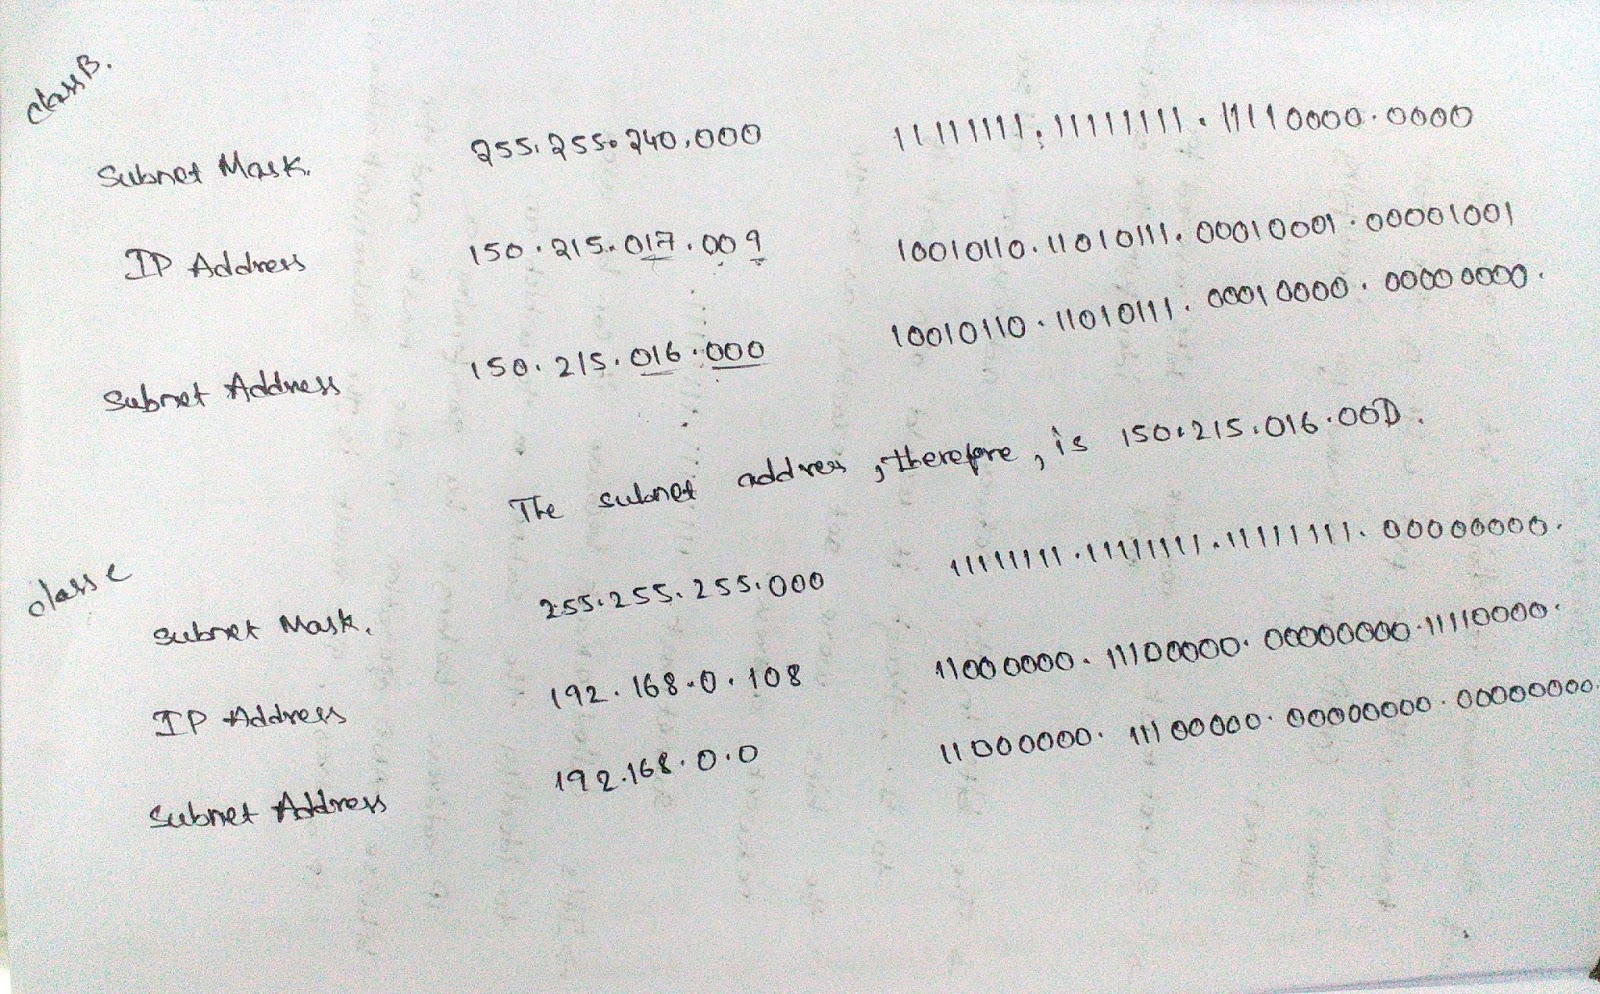 class B.
Subnet Mask. 255.255.240.000 11111111.11111111.11110000.0000
IP Address 150.215.017.009 10010110.11010111.00010001.00001001
Subnet Address 150.215.016.000 10010110.11010111.00010000.00000000.
The subnet address, therefore, is 150.215.016.000.
class C
Subnet Mask. 255.255.255.000 11111111.11111111.11111111.00000000.
IP Address 192.168.0.108 11000000.11100000.00000000.11110000.
Subnet Address 192.168.0.0 11000000.11100000.00000000.00000000.